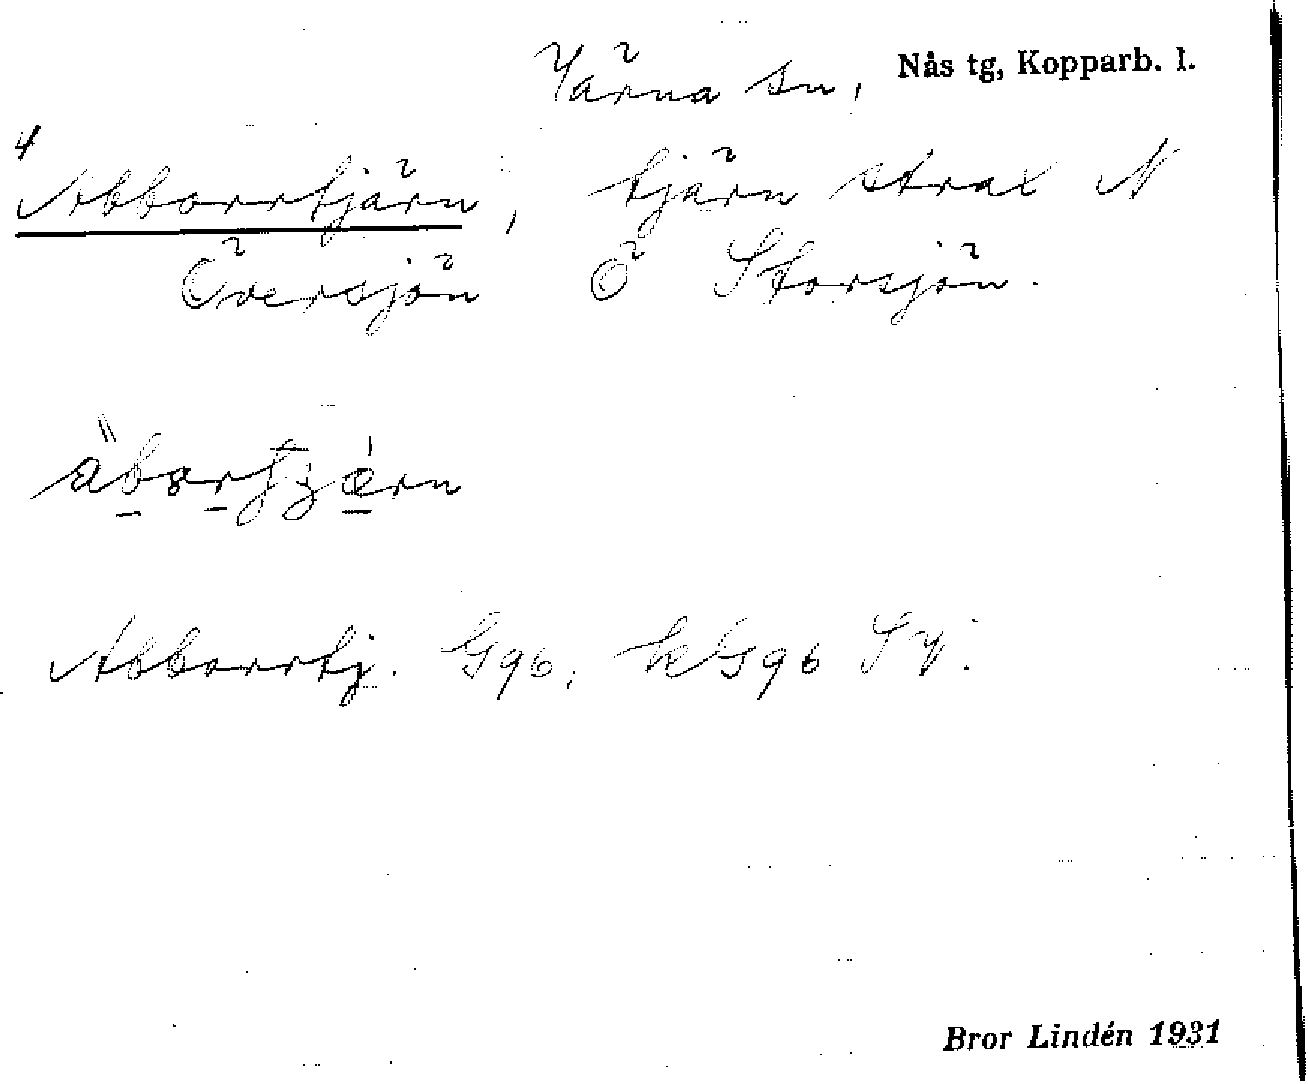 Järna sn, Nås tg, Kopparb. l.
4
Abborrtjärn, tjärn strax N
Översjön Ö Storsjön.
Abborrtj. G96, kG96 SV.
Bror Lindén 1931